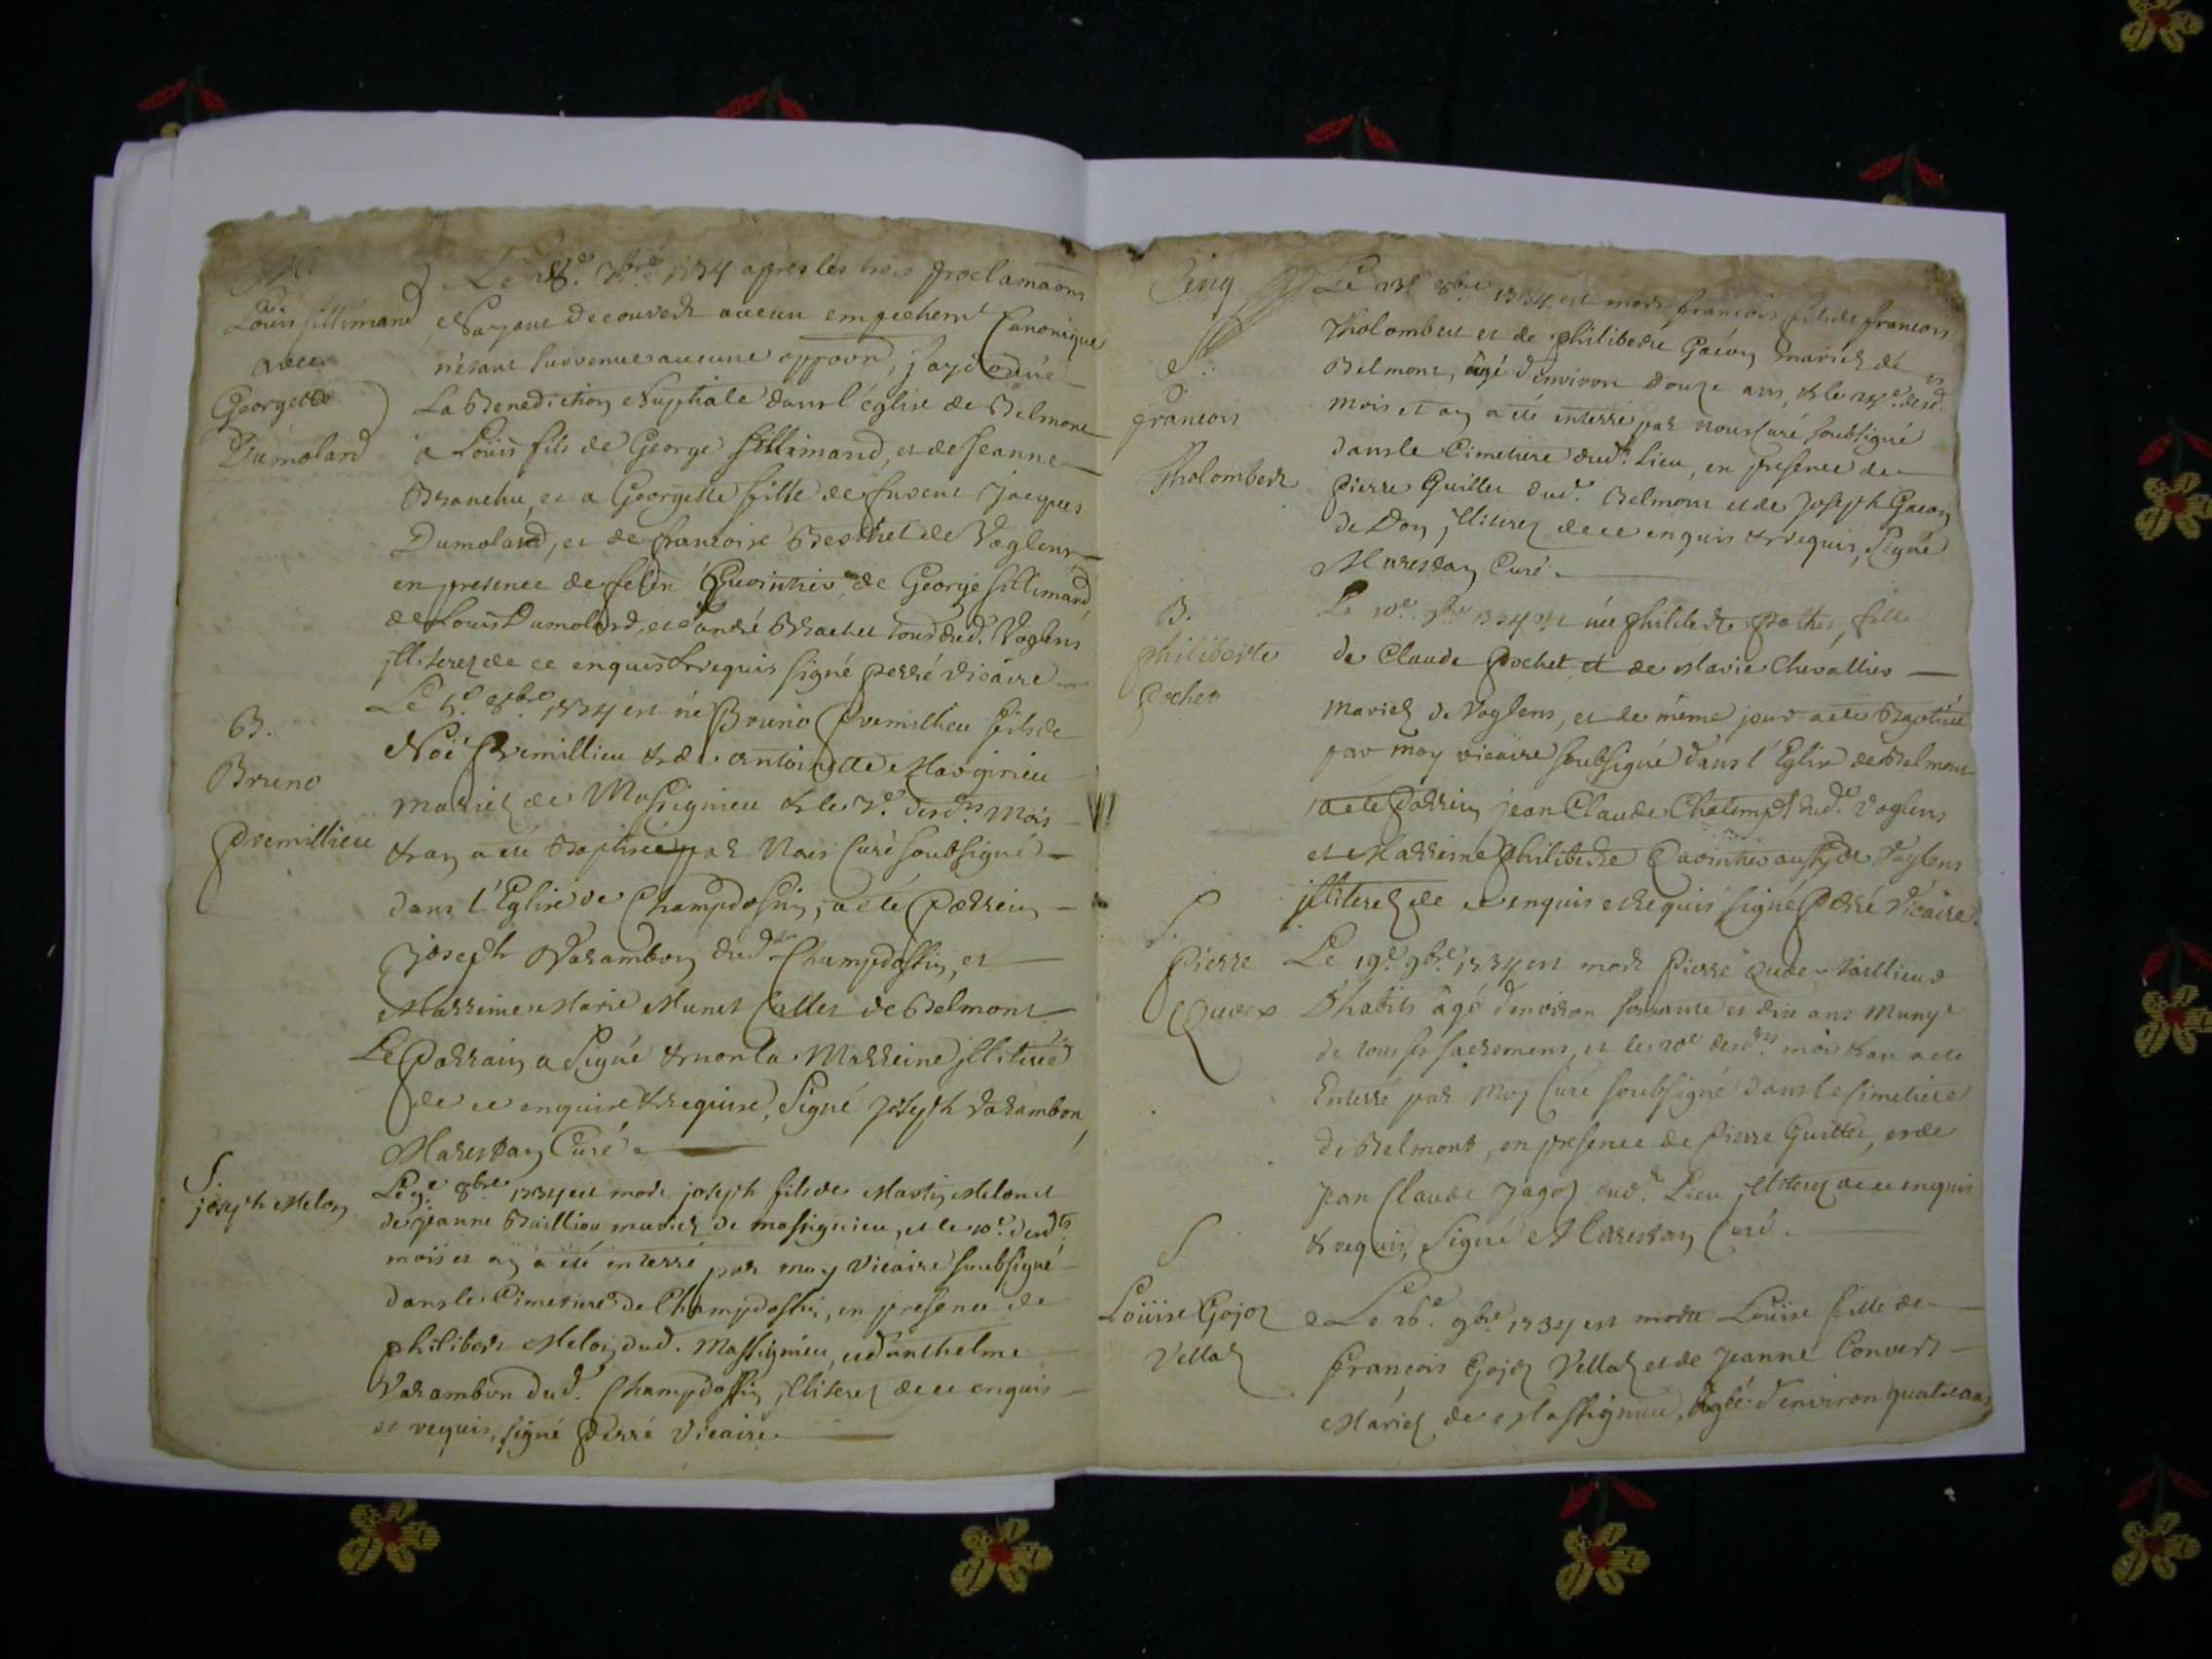 M.
Louis fillimand
avec
Georgette
Dumoland
Le 28.e 7bre 1734 apres les trois proclamaõns
N'ayant decouvert aucun empechemt Canonique
n'étant survenue aucune opposon, j'ay donné
La Benediction Nuptiale dans l'église de Belmont
a Louis fils de George fillimand, et de Jeanne
Branchu, et a Georgette fille de fuseut Jacques
Dumoland, et de francoise Berthet de Voglens
en presence de George fillimand,
de Louis Dumoland, et d'andré Brachet tous dud. Voglens
jlliterez de ce enquis & requis signé perré vicaire
B.
Bruno
Premillieu
Le 6.e 8bre 1734 est né Bruno Premillieu fils de
Noë Premillieu & de antoinette Marginieu
mariez de Massignieu & le 7.e desdts mois
& an a été Baptisé par Nous Curé soubsigné
dans l'Eglise de Champdossin, a été Parrein
joseph Varambon dud. Champdossin, et
Marreine Marie Munet Callet de Belmont
Le Parrain a signé & non la Marreine jlliterée
de ce enquise & requise, Signé Joseph Varambon,
Marestan Curé
S.
joseph Melon
Le 9.e 8bre 1734 est mort joseph fils de Martin Melon et
de jeanne Bailliou mariez de massignieu, et le 10.e desdts
mois et an a été enterré par moy Vicaire soubsigné
dans le Cimetiere de Champdossin, en presence de
philibert Melon dud. Massignieu, et d'anthelme
Varambon dud. Champdossin jlliterez de ce enquis
et requis, signé Perré Vicaire
Cinq
S.
francois
Tholombert
Le 13.e 8bre 1734 est mort francois fils de francois
Tholombert et de philiberte Gacon mariez de
Belmont, âgé d'environ douze ans, & le 14.e desd.
mois et an a été enterré par nous Curé soubsigné
dans le Cimetiere dud. Lieu, en presence de
Pierre Guillet dud. Belmont et de Joseph Gacon
de Don, jlliterez de ce enquis & requis, Signé
Marestan Curé
B.
philiberte
Pochet
Le 10.e 9bre 1734 est née philiberte Pochet, fille
de Claude Pochet et de Marie Chevallier
mariez de Voglens, et le même jour a été Baptisée
par moy vicaire soubsigné dans l'Eglise de Belmont
a été Parrein jean Claude Chatempt dud. Voglens
et Marreine philiberte Quointier aussy de Voglens
jlliterez de ce enquis et requis signé Perré Vicaire.
S.
Pierre
Quder
Le 19.e 9bre 1734 est mort Pierre Quder tailleur
D'habits âgé d'environ soixante et dix ans muny
de tous ses sacremens, et le 20.e desdts mois & an a été
Enterré par Moy Curé soubsigné dans le Cimetiere
de Belmont, en presence de Pierre Guillet, et de
Jean Claude Jagoz dud. Lieu jlliterez de ce enquis
& requis, Signé Marestan Curé
S
Loüise Gojoz
Vellaz
Le 26.e 9bre 1734 est morte Loüise fille de
françois Gojoz Vellaz et de Jeanne Convert
Mariez de Massignieu, âgée d'environ quatre ans